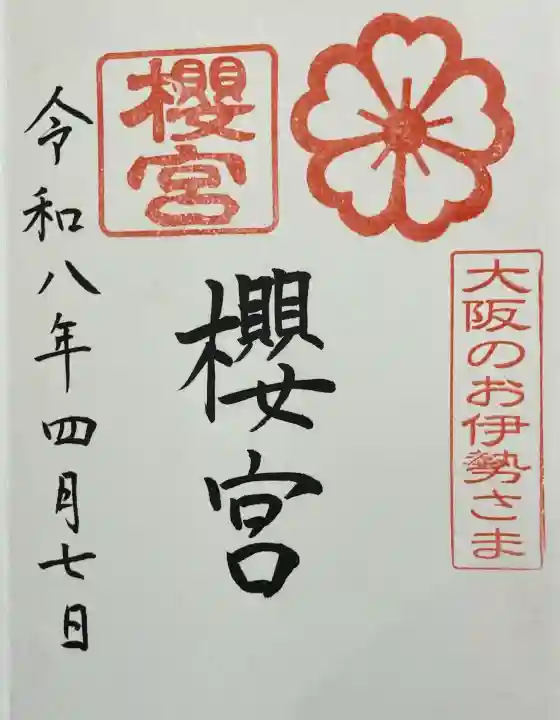 大阪のお伊勢さま
櫻宮
櫻宮
令和八年四月七日